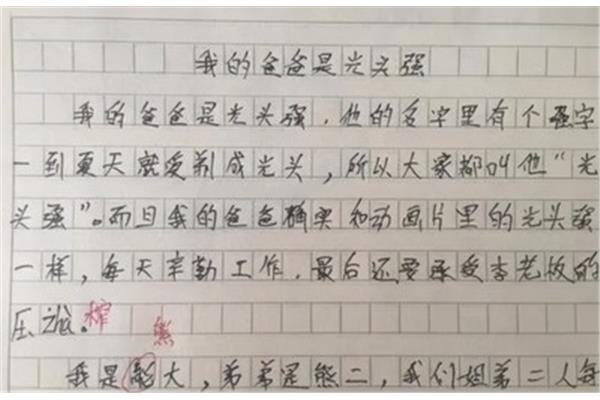 我的爸爸是光头强
我的爸爸是光头强，他的名字里有个强字
一到夏天就爱剃成光头，所以大家都叫他“光
头强”。而且我的爸爸确实和动画片里的光头强
一样，每天辛勤工作，最后还要承受李老板的
压。榨
熊
我是大，弟弟是熊二，我们姐弟二人每